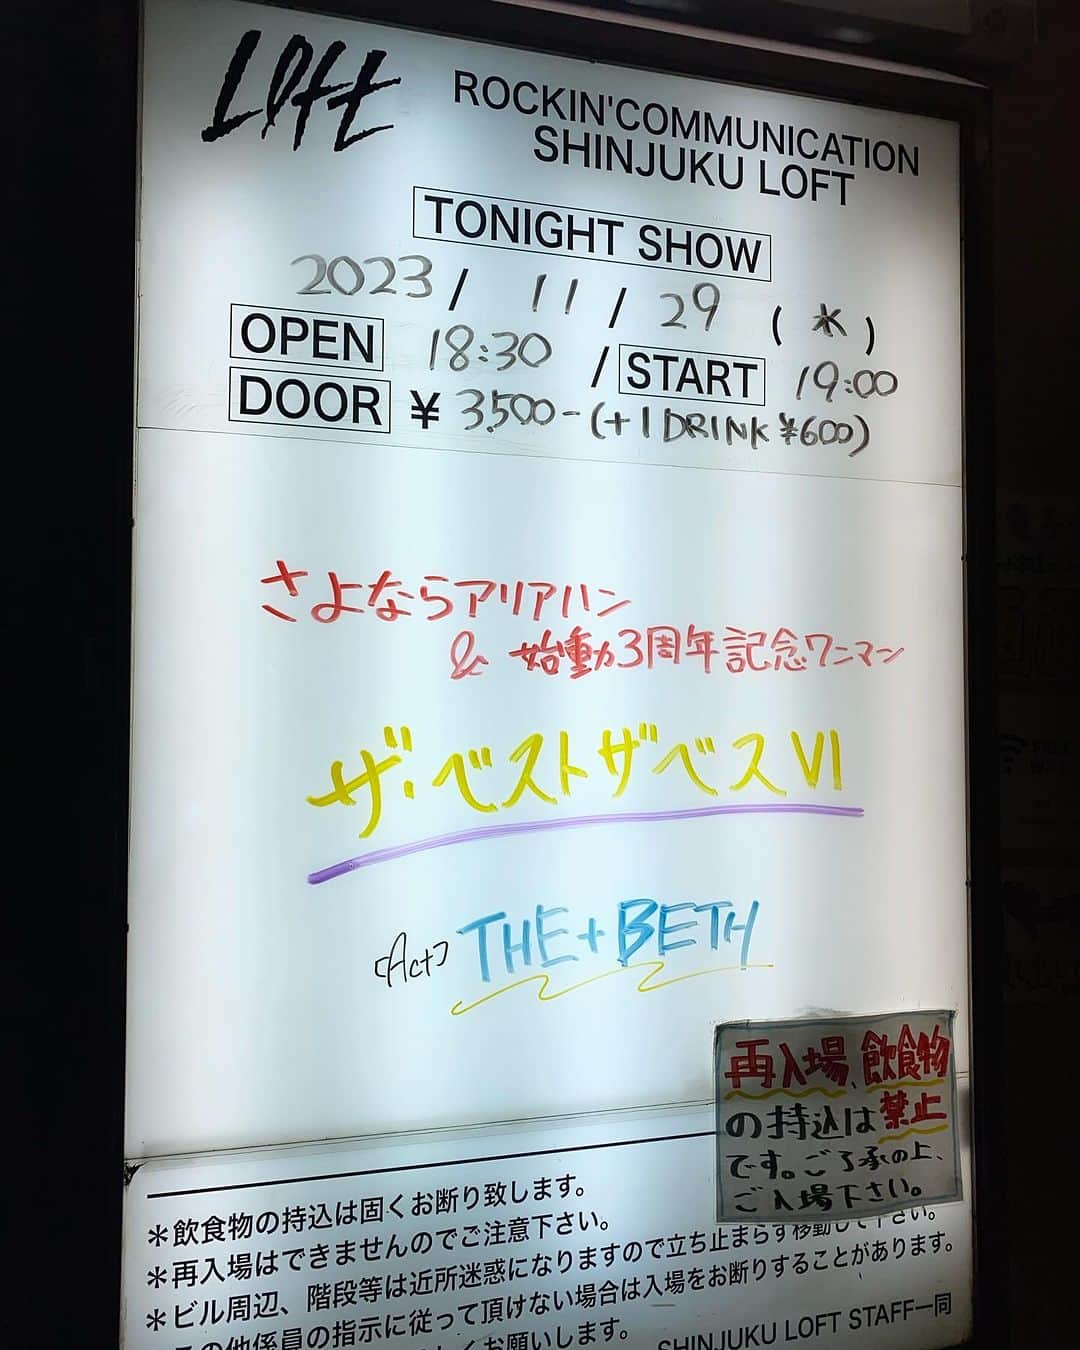 Loft
ROCKIN'COMMUNICATION
SHINJUKU LOFT
TONIGHT SHOW
2023 / 11 / 29 (水)
OPEN 18:30 / START 19:00
DOOR ¥ 3,500- (+1DRINK ¥600)
さよならアリアハン
& 始動3周年記念ワンマン
ザ・ベストザベスVI
[Act] THE+BETH
再入場、飲食物
の持込は禁止
です。ご了承の上、
ご入場下さい。
＊飲食物の持込は固くお断り致します。
＊再入場はできませんのでご注意下さい。
＊ビル周辺、階段等は近所迷惑になりますので立ち止まらず移動して下さい。
の他係員の指示に従って頂けない場合は入場をお断りすることがあります。
くお願いします。
SHINJUKU LOFT STAFF一同